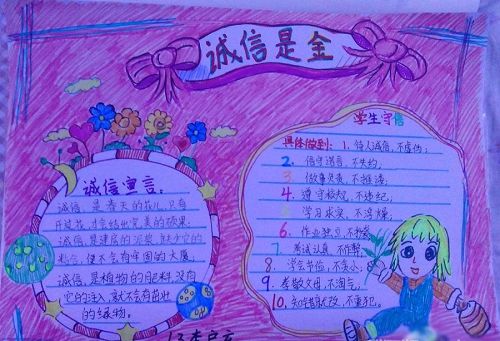 诚信是金
诚信宣言:
诚信,是春天的花儿,只有
开过花,才会结出完美的硕果;
诚信,是建房的泥浆,缺少它的
粘合,便不会有牢固的大厦
诚信,是植物的肥料,没有
它的注入,就不会有茁壮
的绿物。
学生守信
具体做到: 1. 待人诚信,不虚伪;
2. 信守诺言,不失约;
3. 做事负责,不推诿;
4. 遵守校规,不违纪;
5. 学习求实,不浮躁;
6. 作业独立,不抄袭
7. 考试认真,不作弊
8. 学会节俭,不贪小;
9. 孝敬父母,不淘气;
10. 知错就改,不重犯。